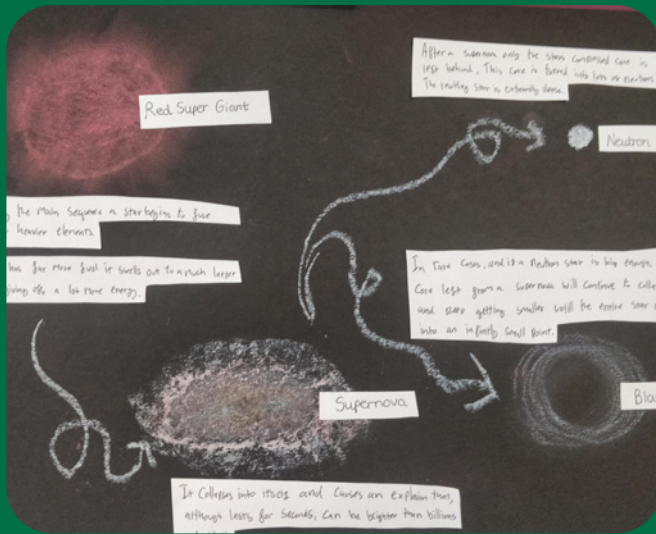 Red Super Giant
After a supernova only the stars compressed core is
left behind. This core is turned into lots of neutrons
The resulting star is extremely dense.
Neutron
the Main Sequence a star begins to fuse
heavier elements.
has far more fuel it swells out to a much larger
giving off a lot more energy.
In rare cases, and if a neutron star is big enough,
Core left from a supernova will continue to
and keep getting smaller until the entire star
into an infinitly small point.
Supernova
Bla
It Collapses into itself and causes an explosion that,
although lasts for seconds, can be brighter than billions